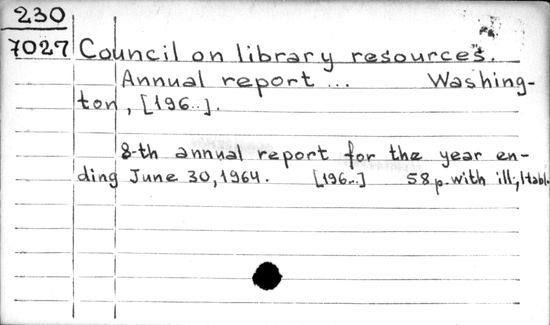 230
7027 Council on library resources.
Annual report ... Washing-
ton, [196..].
8-th annual report for the year en-
ding June 30, 1964. [196..] 58 p. with ill., 1 tabl.